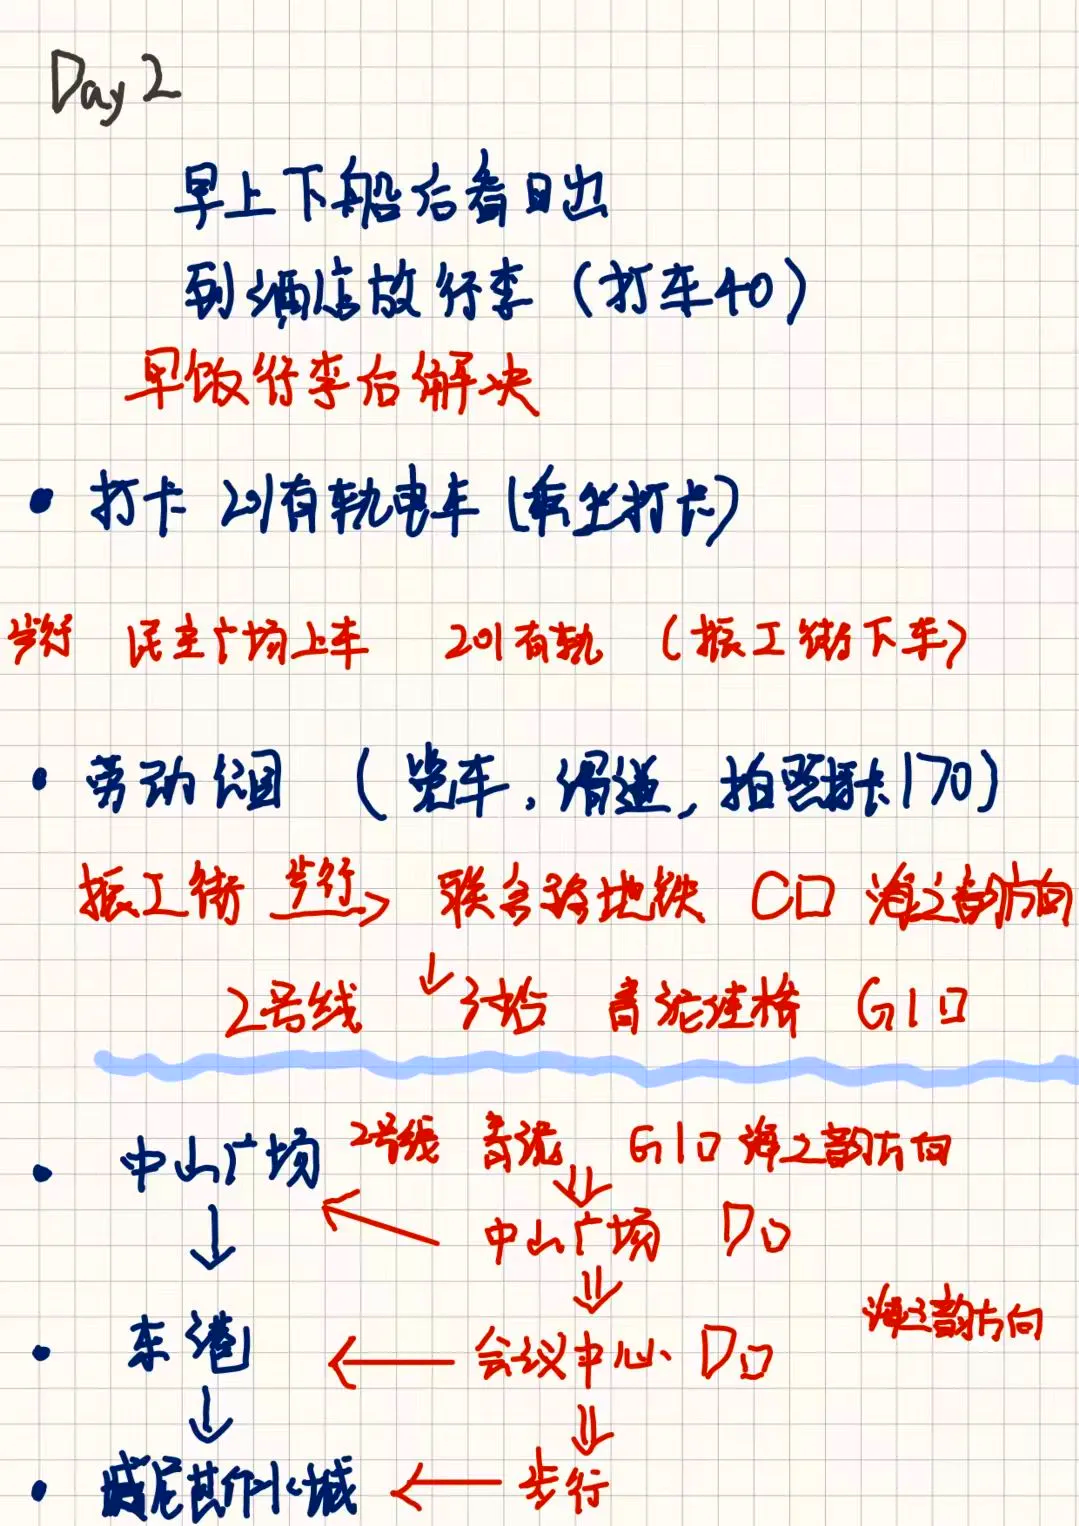 Day 2
早上下船后看日出
到酒店放行李（打车40）
早饭行李后解决
• 打卡 201有轨电车（乘坐打卡）
步行 民主广场上车 201有轨（振工街下车）
• 劳动公园（览车，滑道，拍照打卡170）
振工街 步行→ 联合路地铁 C口 海之韵方向
2号线 ↓ 3站 青泥洼桥 G1口
• 中山广场 2号线 青泥 G1口 海之韵方向
中山广场 D口
海之韵方向
• 东港 ← 会议中心 D口
• 威尼斯水城 ← 步行